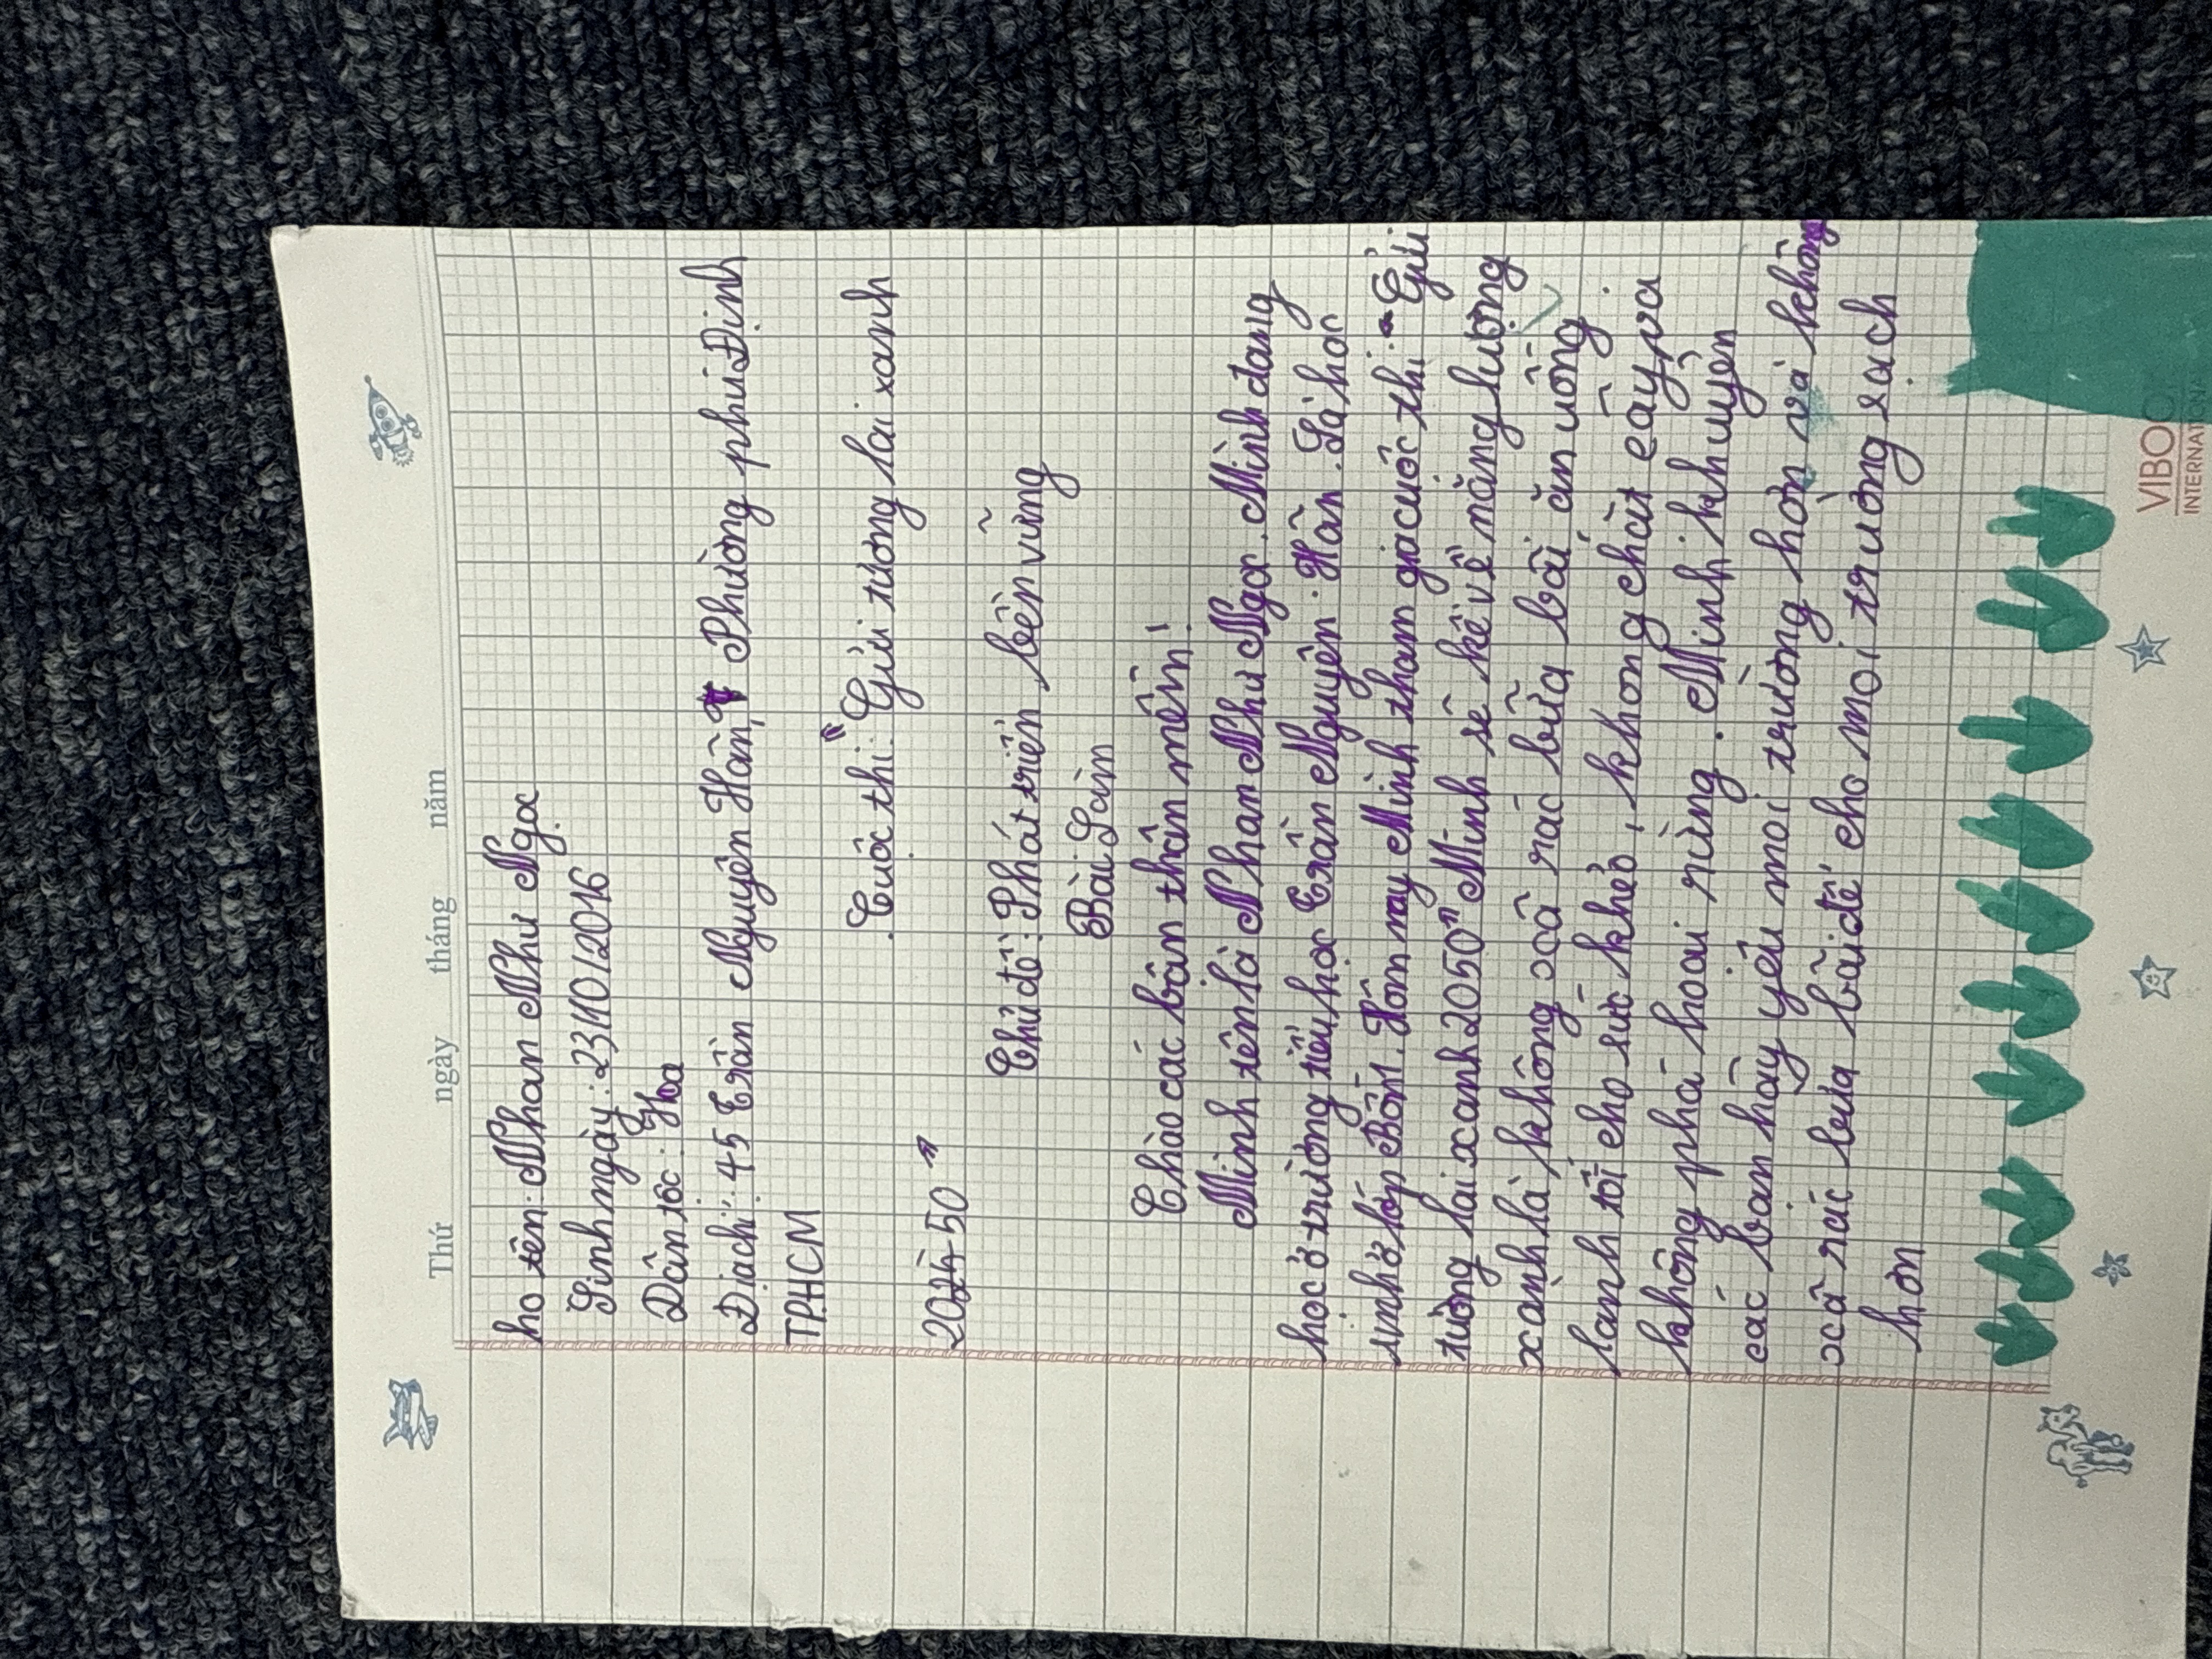 Thứ ngày tháng năm
họ tên: Nhan Như Ngọc
Sinh ngày: 23/10/2016
Dân tộc: Hoa
Địa chỉ: 45 Trần Nguyên Hãn, Phường phú Định
TP.HCM
Cuộc thi: "Gửi tương lai xanh
2024-50"
Chủ đề: Phát triển bền vững
Bài Làm
Chào các bạn thân mến!
Mình tên là Nhan Như Ngọc. Mình đang
học ở trường tiểu học Trần Nguyên Hãn. Là học
sinh ở lớp Bốn1. Hôm nay Mình tham gia cuộc thi: "Gửi
tương lai xanh 2050" Mình sẽ kể về năng lượng
xanh là không xả rác bừa bãi ăn uống
lành tốt cho sức khẻo, không chặt cây và
không phá hoại rừng. Mình khuyên
các bạn hãy yêu môi trường hơn và không
xả rác bừa bãi để cho môi trường sạch
hơn
VIBOO
INTERNATIONA